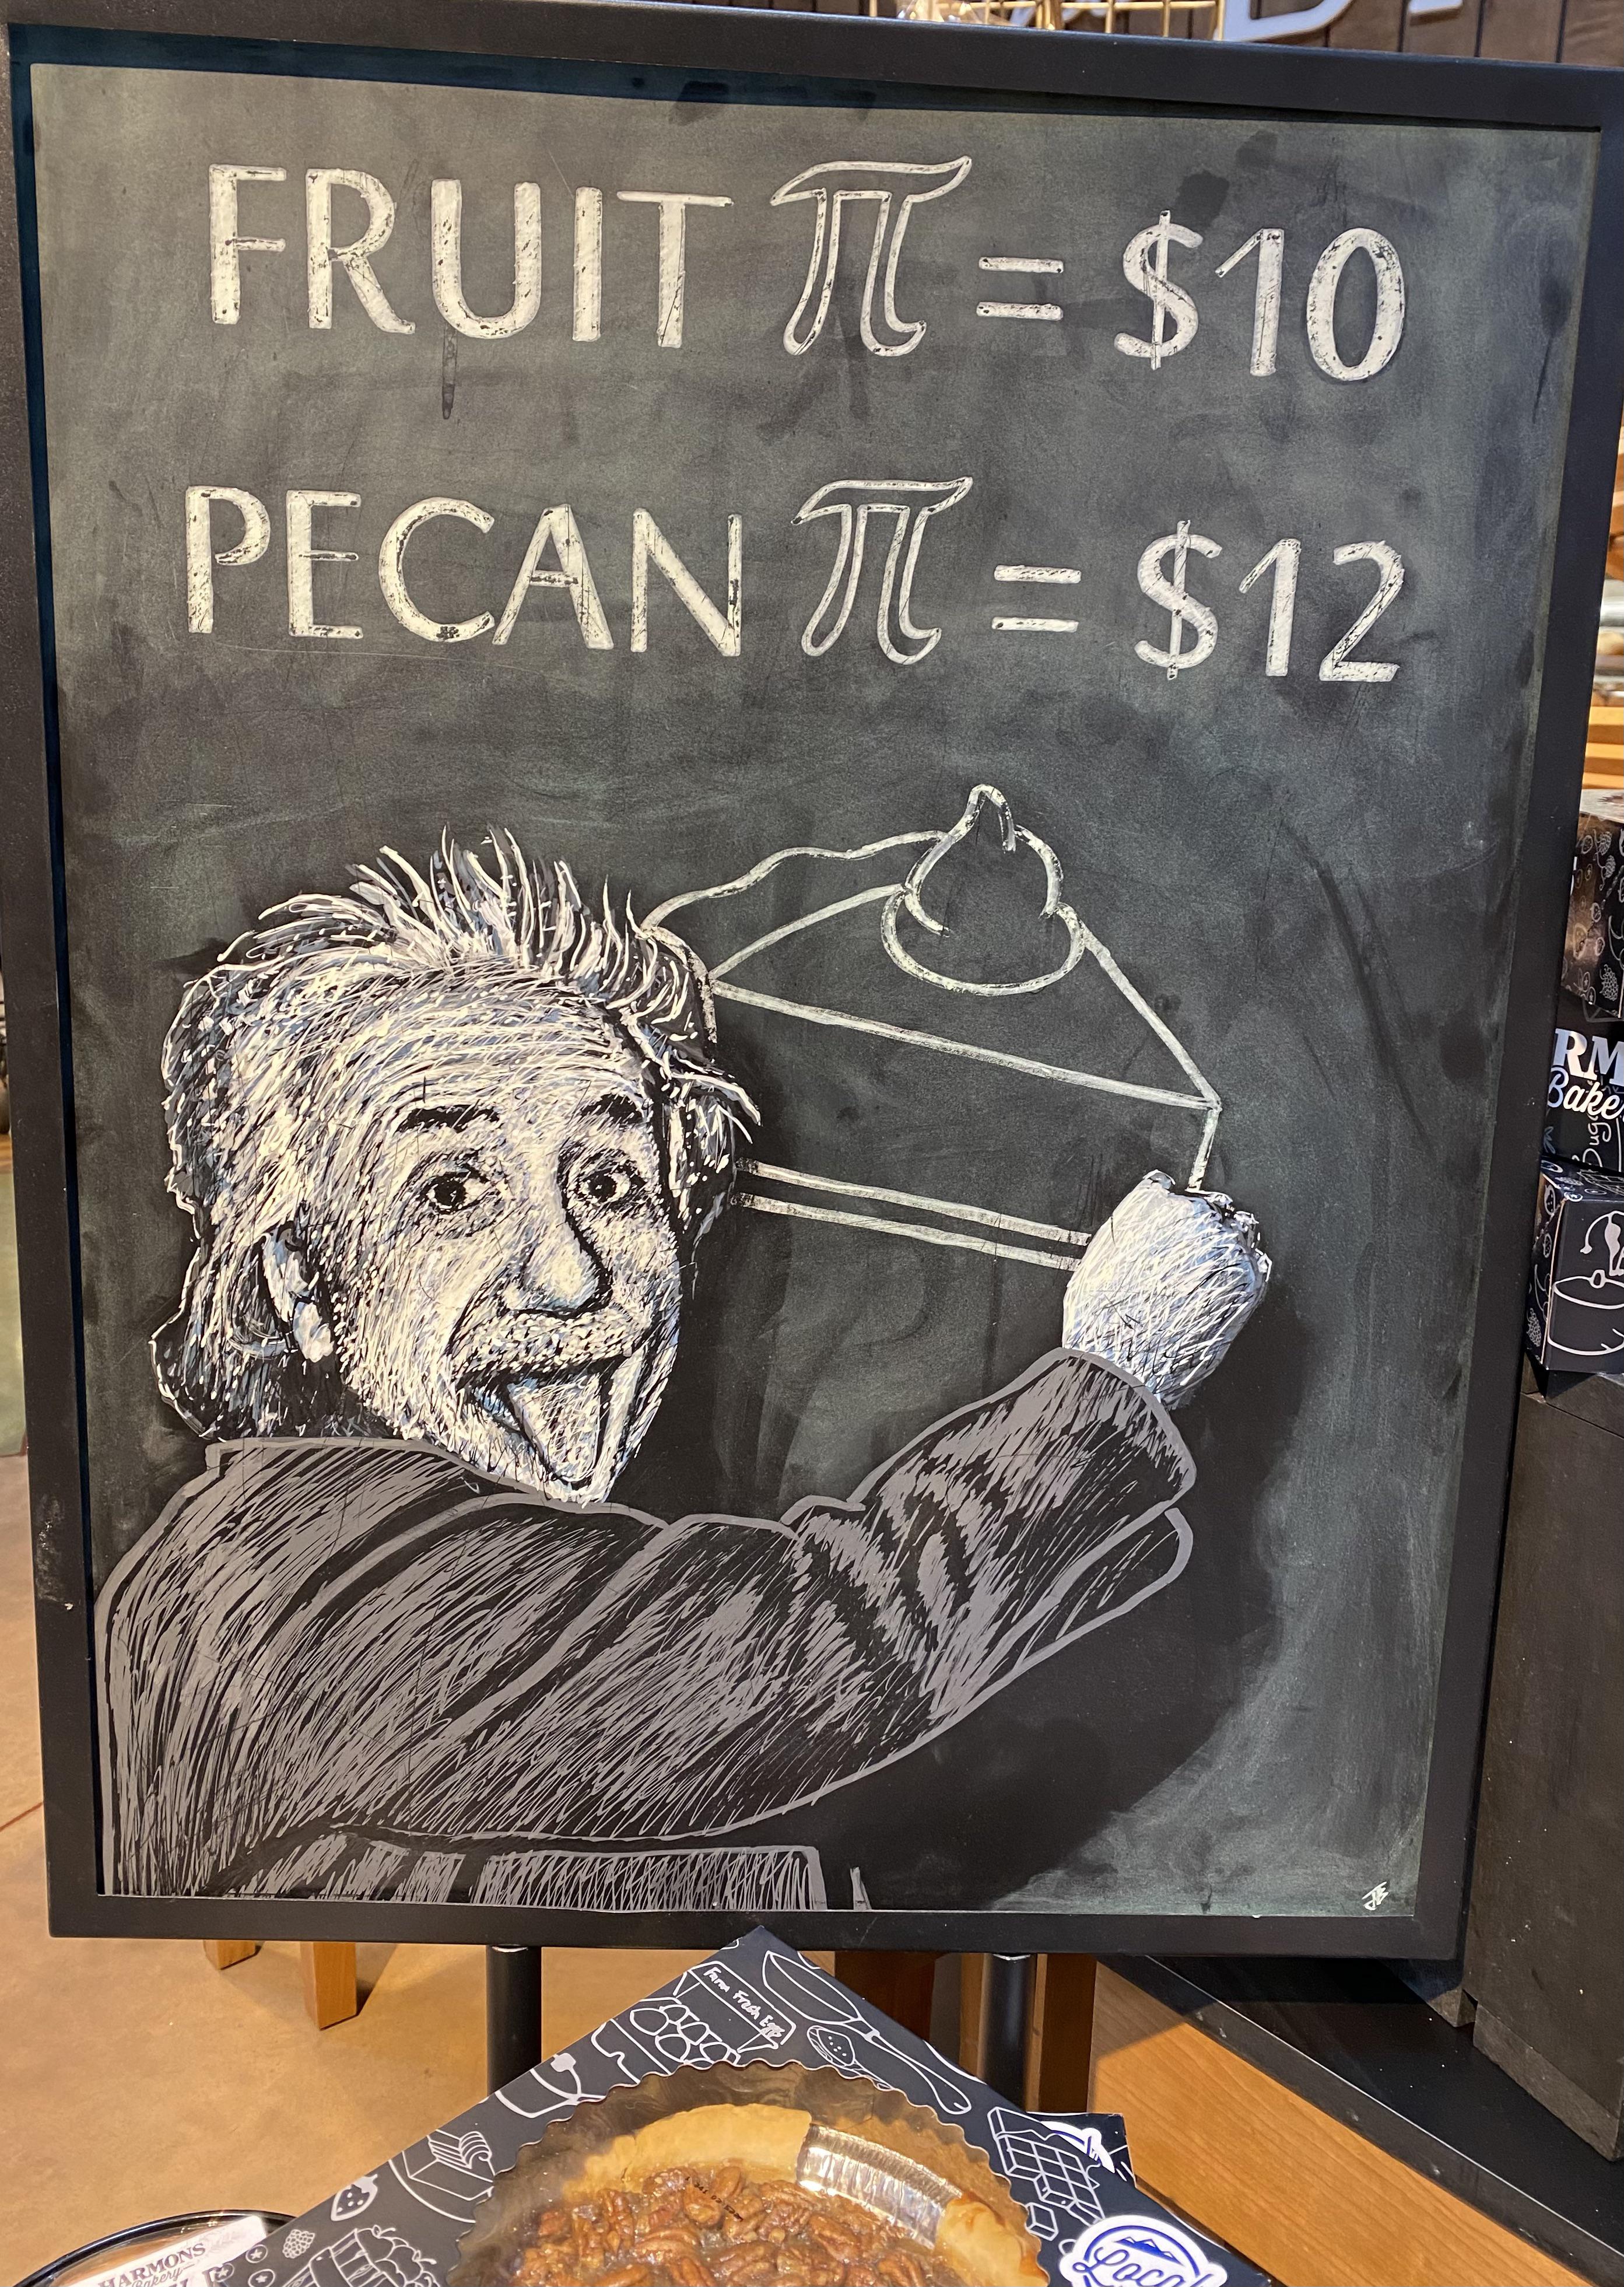 FRUIT π = $10
PECAN π = $12
RM
Bake
Farm Fresh Eggs
HARMONS
Bakery
Local